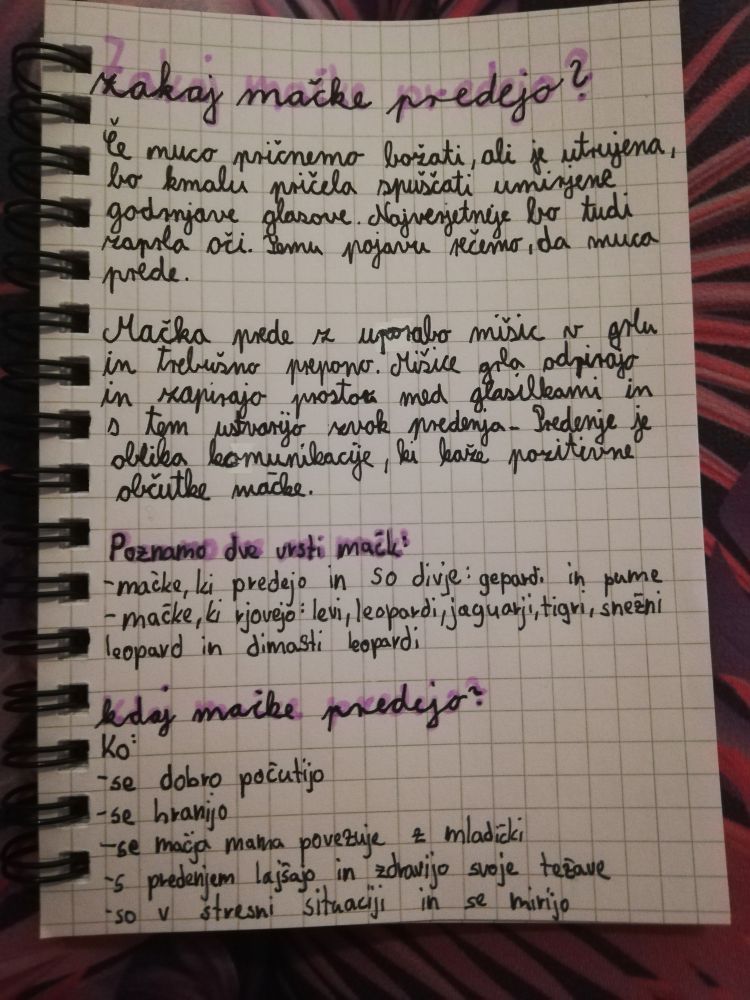 Zakaj mačke predejo?
Če muco pričnemo božati, ali je utrujena,
bo kmalu pričela spuščati umirjene
godrnjave glasove. Najverjetneje bo tudi
zaprla oči. Temu pojavu rečemo, da muca
prede.
Mačka prede z uporabo mišic v grlu
in trebušno prepono. Mišice grla odpirajo
in zapirajo prostor med glasilkami in
s tem ustvarijo zvok predenja. Predenje je
oblika komunikacije, ki kaže pozitivne
občutke mačke.
Poznamo dve vrsti mačk:
-mačke, ki predejo in so divje: gepardi in pume
-mačke, ki rjovejo: levi, leopardi, jaguarji, tigri, snežni
leopard in dimasti leopardi
kdaj mačke predejo?
Ko:
-se dobro počutijo
-se hranijo
-se mačja mama povezuje z mladički
-s predenjem lajšajo in zdravijo svoje težave
-so v stresni situaciji in se mirijo